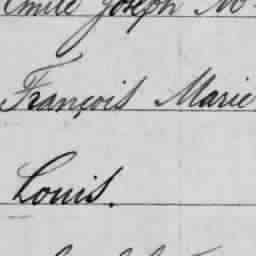 Emile Joseph M
François Marie
Louis.